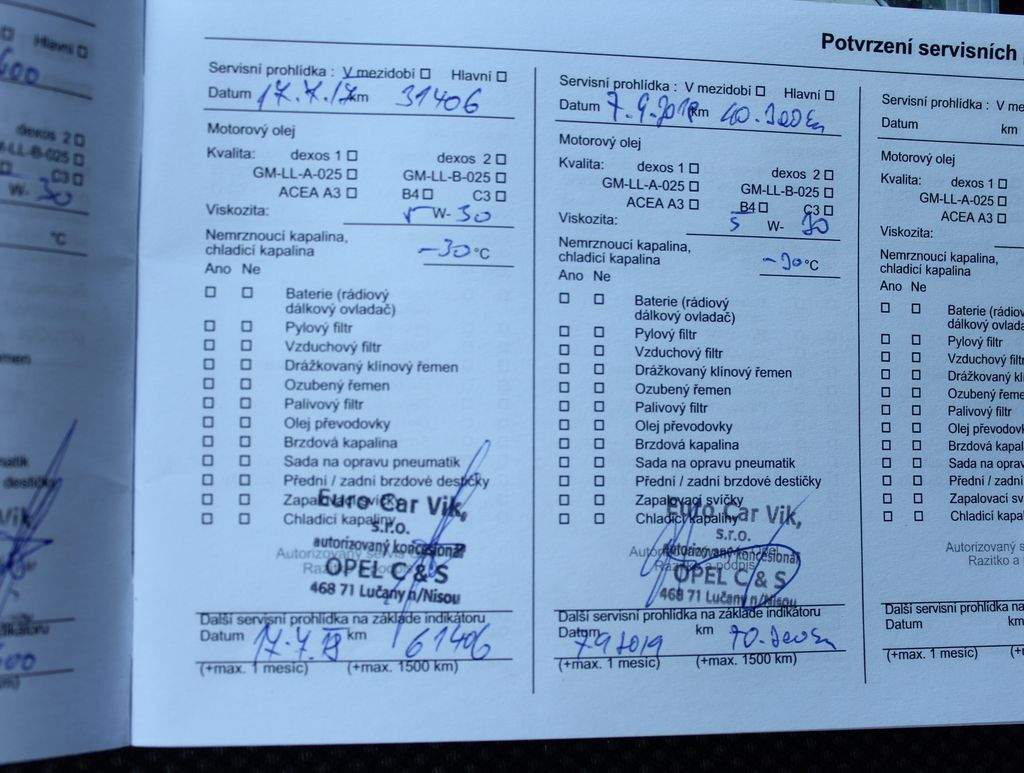 Potvrzení servisních
Hlavní
600
dexos 2
LL-B-025
C3
W- 30
°C
Servisní prohlídka : V mezidobí Hlavní
Datum 17.7.17 km 31406
Motorový olej
Kvalita: dexos 1 dexos 2
GM-LL-A-025 GM-LL-B-025
ACEA A3 B4 C3
Viskozita: 5 W- 30
Nemrznoucí kapalina,
chladicí kapalina -30 °C
Ano Ne
Baterie (rádiový
dálkový ovladač)
Pylový filtr
Vzduchový filtr
Drážkovaný klínový řemen
Ozubený řemen
Palivový filtr
Olej převodovky
Brzdová kapalina
Sada na opravu pneumatik
Přední / zadní brzdové destičky
Zapalovací svíčky
Chladicí kapaliny
Euro Car Vik,
s.r.o.
autorizovaný koncesionář
OPEL C & S
468 71 Lučany n/Nisou
Další servisní prohlídka na základě indikátoru
Datum 17.7.18 km 61406
(+max. 1 mesíc) (+max. 1500 km)
Servisní prohlídka : V mezidobí Hlavní
Datum 7.9.2018 km
Motorový olej
Kvalita: dexos 1 dexos 2
GM-LL-A-025 GM-LL-B-025
ACEA A3 B4 C3
Viskozita: 5 W- 30
Nemrznoucí kapalina,
chladicí kapalina -30 °C
Ano Ne
Baterie (rádiový
dálkový ovladač)
Pylový filtr
Vzduchový filtr
Drážkovaný klínový řemen
Ozubený řemen
Palivový filtr
Olej převodovky
Brzdová kapalina
Sada na opravu pneumatik
Přední / zadní brzdové destičky
Zapalovací svíčky
Chladicí kapaliny
Euro Car Vik,
s.r.o.
autorizovaný koncesionář
Razítko a podpis
OPEL C & S
468 71 Lučany n/Nisou
Další servisní prohlídka na základě indikátoru
Datum 7.9.2019 km
(+max. 1 mesíc) (+max. 1500 km)
Servisní prohlídka : V me
Datum km
Motorový olej
Kvalita: dexos 1
GM-LL-A-025
ACEA A3
Viskozita:
Nemrznoucí kapalina,
chladicí kapalina
Ano Ne
Baterie (rádiov
dálkový ovlada
Pylový filtr
Vzduchový filtr
Drážkovaný klí
Ozubený řeme
Palivový filtr
Olej převodovk
Brzdová kapal
Sada na oprav
Přední / zadní
Zapalovací sv
Chladicí kapal
Autorizovaný s
Razítko a
Další servisní prohlídka na
Datum km
(+max. 1 mesíc)